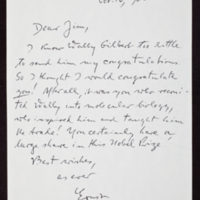 Dear Jim,
I know Wally Gilbert too little
to send him my congratulations.
So I thought I would congratulate
you! Afterall, it was you who recruited
Wally into molecular biology,
who inspired him and taught him
the trade! You certainly have a
large share in this Nobel Prize.
Best wishes,
as ever
Ernst